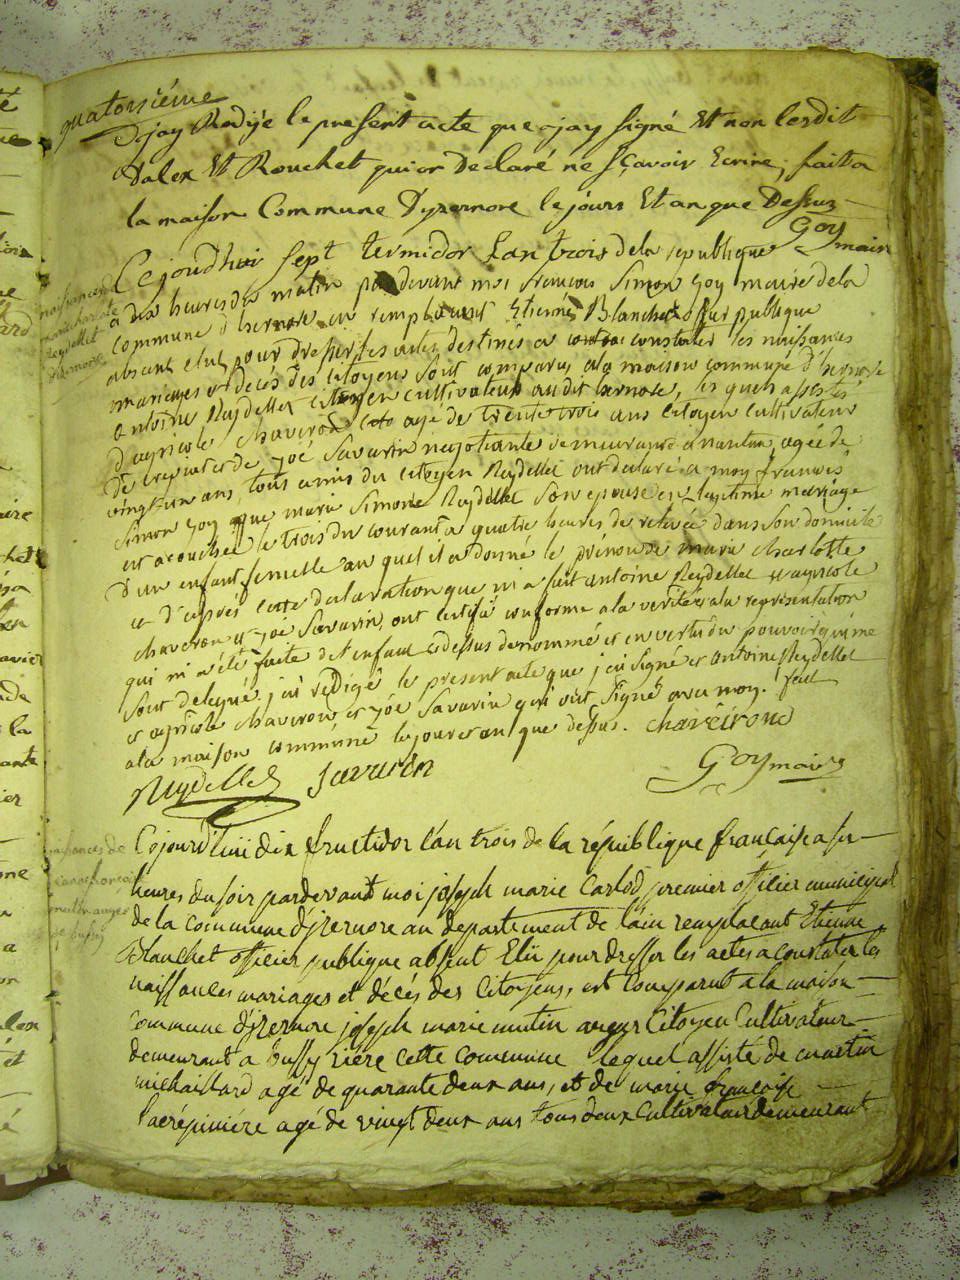 quatorsiéme
Djay Redijé le present acte que jay signé Et non lesdit
Dalex Et Rouchet qui on Declaré ne sçavoir Ecrire, fait a
la maison Commune Dyzernore le jours Et an que Dessus
Goy maire
Cejourdhui sept termidor Lan trois dela republique
a dix heures du matin par devant moi françois Simon Goy maire dela
commune d'hernore en remplacent Etienne Blanchet officier publique
absent elut pour dresser les actes destinés a constater les naissances
mariages et décés des citoyens sont comparus a la maison commune d'hernore
antoine Reydellet citoyen cultivateur audit hernore, les quels assistés
d'agricole chaveron agé de trente trois ans citoyen cultivateur
de et de zoé Savarin negotiante demeurand a nantua, agée de
vingt un ans, tous amis du citoyen Reydellet ont declaré a moy françois
Simon Goy que marie Simone Reydellet son epouse en legitime mariage
est acouchée le trois du courant a quatre heures de relevée dans son domicile
d'un enfant femelle au quel il a donné le prénom de marie charlotte
et d'aprés cette declaration que m'a fait antoine Reydellet et agricole
chaveron et zoé Savarin, ont certifié conforme a la verité et a la representation
qui m'a été faite de l'enfant cy dessus denommé et en vertu du pouvoir qui me
sont delegué, j'ai redigé le present acte que j'ai signé et antoine Reydellet
et agricole chaveron et zoé Savarin qui ont signé avec moy. fait
a la maison commune le jour et an que dessus. chaveirond
Reydellet Savarin
Goy maire
naissances de
marie charlote
Reydellet
Cejourd'hui dix fructidor l'an trois de la république française a six
heures du soir pardevant moi joseph marie Carlod premier officier municipal
de la commune d'izernore au departement de l'ain remplacant Etienne
Blanchet officier publique absent Elü pour dresser les actes a constater les
naissances mariages et décés des Citoyens, est Comparut a la maison
commune d'izernore joseph marie mutin Citoyen Cultivateur
demeurant a bussy rière cette commune lequel assisté de martin
michaillard agé de quarante deux ans, et de marie françoise
lacrépiniére agé de vingt deux ans tous deux Cultivateur demeurant
naissances de